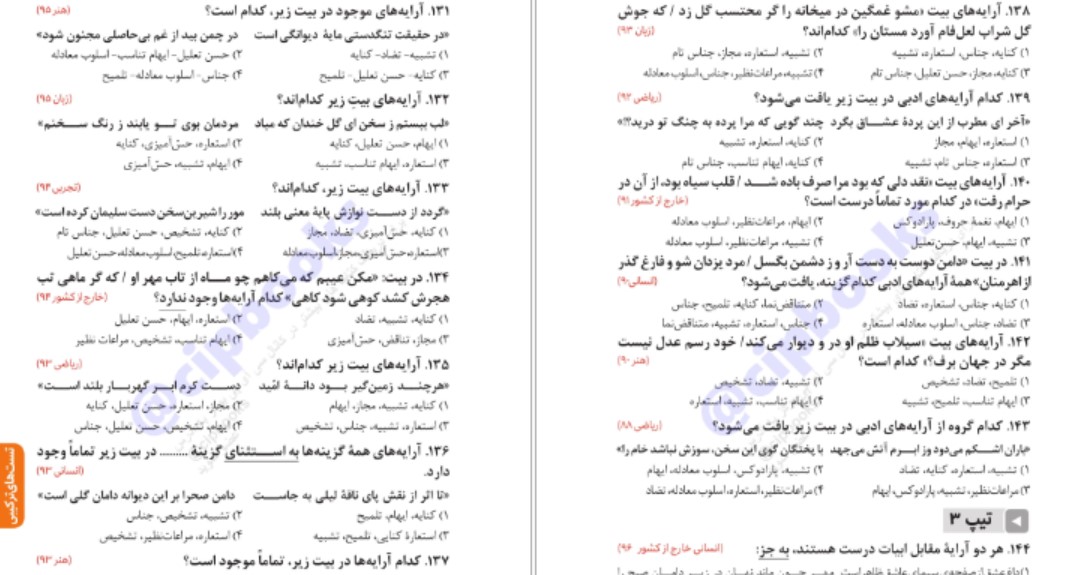 ۱۳۱. آرایه‌های موجود در بیت زیر، کدام است؟ (هنر ۹۵)
«در حقیقت تنگدستی مایهٔ دیوانگی است در چمن بید از غم بی‌حاصلی مجنون شود»
۱) تشبیه- تضاد- کنایه ۲) حسن تعلیل- ایهام تناسب- اسلوب معادله
۳) کنایه- حسن تعلیل- تلمیح ۴) جناس- اسلوب معادله- تلمیح
۱۳۲. آرایه‌های بیت زیر کدام‌اند؟ (زبان ۹۵)
«لب ببستم ز سخن ای گل خندان که مباد مردمان بوی تـو یابند ز رنگ سـخنم»
۱) ایهام، حسن تعلیل، کنایه ۲) استعاره، حس‌آمیزی، کنایه
۳) استعاره، ایهام تناسب، تشبیه ۴) ایهام، تشبیه، حس‌آمیزی
۱۳۳. آرایه‌های بیت زیر، کدام‌اند؟ (تجربی ۹۴)
«گردد از دسـت نوازش پایهٔ معنی بلند مور را شیرین‌سخن دست سلیمان کرده است»
۱) کنایه، حس‌آمیزی، تضاد، مجاز ۲) کنایه، تشخیص، حسن تعلیل، جناس تام
۳) استعاره، حس‌آمیزی، مجاز، اسلوب معادله ۴) استعاره، تلمیح، اسلوب معادله، حسن تعلیل
۱۳۴. در بیت: «مکن عیبم که می‌کاهم چو مـاه از تاب مهر او / که گر ماهی تب
هجرش کشد کوهی شود کاهی» کدام آرایه‌ها وجود ندارد؟ (خارج از کشور ۹۴)
۱) کنایه، تشبیه، تضاد ۲) استعاره، ایهام، حسن تعلیل
۳) مجاز، تناقض، حس‌آمیزی ۴) ایهام تناسب، تشخیص، مراعات نظیر
۱۳۵. آرایه‌های بیت زیر کدام‌اند؟ (ریاضی ۹۳)
«هرچنـد زمین‌گیر بـود دانـهٔ امّید دسـت کرم ابـر گهربـار بلند اسـت»
۱) کنایه، تشبیه، مجاز، ایهام ۲) مجاز، استعاره، حسن تعلیل، کنایه
۳) استعاره، تشبیه، جناس، تشخیص ۴) ایهام، تشخیص، حسن تعلیل، جناس
۱۳۶. آرایه‌های همهٔ گزینه‌ها به اسـتثنای گزینهٔ ......... در بیت زیر تماماً وجود
دارد. (انسانی ۹۳)
«تا اثر از نقش پای ناقهٔ لیلی به جاسـت دامن صحرا بر این دیوانه دامان گلی است»
۱) کنایه، ایهام، تلمیح ۲) تشبیه، تشخیص، جناس
۳) استعارهٔ کنایی، تلمیح، تشبیه ۴) استعاره، مراعات‌نظیر، تشخیص
۱۳۷. کدام آرایه‌ها در بیت زیر، تماماً موجود است؟ (هنر ۹۳)
تست‌های ترکیبی
۱۳۸. آرایه‌های بیت «مشو غمگین در میخانه را گر محتسب گل زد / که جوش
گل شراب لعل‌فام آورد مستان را» کدام‌اند؟ (زبان ۹۳)
۱) کنایه، جناس، استعاره، تشبیه ۲) تشبیه، استعاره، مجاز، جناس تام
۳) کنایه، مجاز، حسن تعلیل، جناس تام ۴) تشبیه، مراعات‌نظیر، جناس، اسلوب معادله
۱۳۹. کدام آرایه‌های ادبی در بیت زیر یافت می‌شود؟ (ریاضی ۹۲)
«آخر ای مطرب از این پردهٔ عشـاق بگرد چند گویی که مرا پرده به چنگ تو درید؟!»
۱) استعاره، ایهام، مجاز ۲) کنایه، استعاره، تشبیه
۳) استعاره، جناس تام، تشبیه ۴) کنایه، ایهام تناسب، جناس تام
۱۴۰. آرایه‌های بیت «نقد دلی که بود مرا صرف باده شـد / قلب سیاه بود، از آن در
حرام رفت» در کدام مورد تماماً درست است؟ (خارج از کشور ۹۱)
۱) ایهام، نغمهٔ حروف، پارادوکس ۲) ایهام، مراعات‌نظیر، اسلوب معادله
۳) تشبیه، ایهام، حسن‌تعلیل ۴) تشبیه، مراعات‌نظیر، اسلوب معادله
۱۴۱. در بیت «دامن دوست به دست آر و ز دشمن بگسل / مرد یزدان شو و فارغ گذر
از اهرمنان» همهٔ آرایه‌های ادبی کدام گزینه، یافت می‌شود؟ (انسانی ۹۰)
۱) کنایه، جناس، استعاره، تضاد ۲) متناقض‌نما، کنایه، تلمیح، جناس
۳) تضاد، جناس، اسلوب معادله، استعاره ۴) جناس، استعاره، تشبیه، متناقض‌نما
۱۴۲. آرایه‌های بیت «سیلاب ظلم او در و دیوار می‌کند / خود رسم عدل نیست
مگر در جهان برف؟» کدام است؟ (هنر ۹۰)
۱) تلمیح، تضاد، تشخیص ۲) تشبیه، تضاد، تشخیص
۳) ایهام تناسب، تلمیح، تشبیه ۴) ایهام تناسب، تشبیه، استعاره
۱۴۳. کدام گروه از آرایه‌های ادبی در بیت زیر یافت می‌شود؟ (ریاضی ۸۸)
«باران اشـکم می‌دود وز ابـرم آتش می‌جهد با پختگان گوی این سخن، سوزش نباشد خام را»
۱) تشبیه، استعاره، کنایه، تضاد ۲) تشبیه، پارادوکس، اسلوب معادله، ایهام
۳) مراعات‌نظیر، تشبیه، پارادوکس، ایهام ۴) مراعات‌نظیر، استعاره، اسلوب معادله، تضاد
تیپ ۳
۱۴۴. هر دو آرایهٔ مقابل ابیات درست هستند، به جز: (انسانی خارج از کشور ۹۶)
@cipbooks
@cipbooks